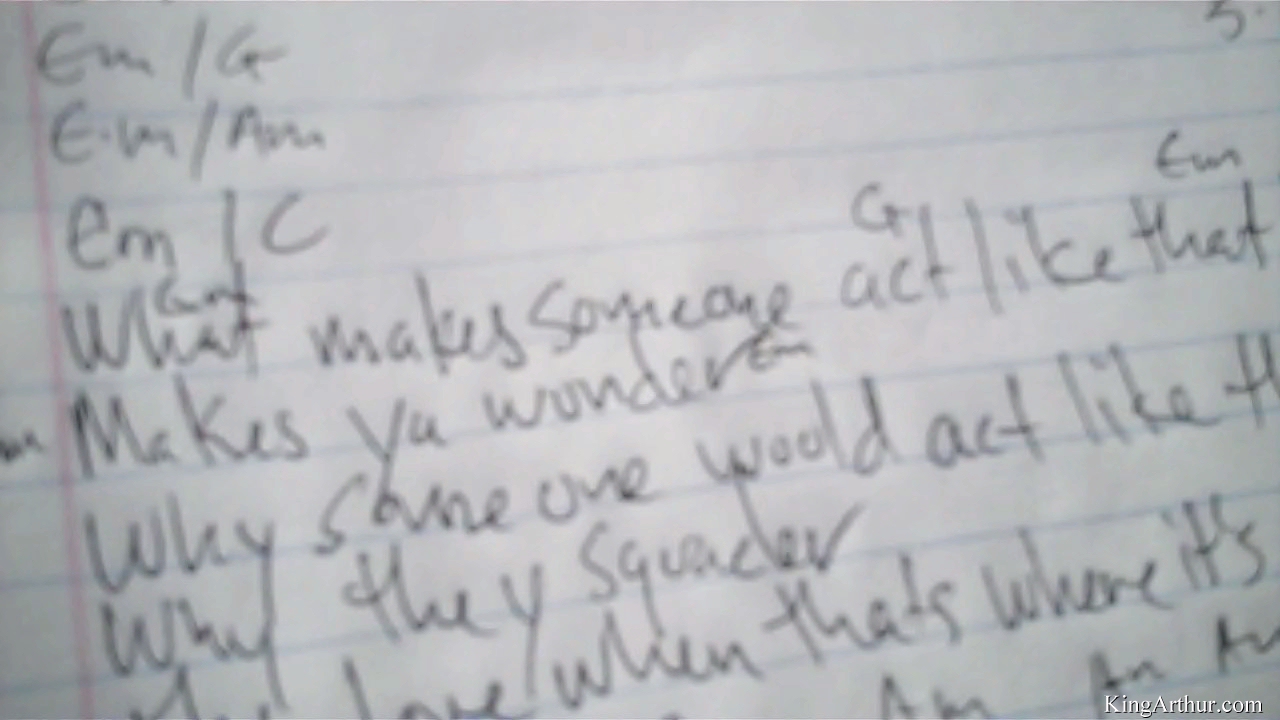 5.
Em / G
Em / Am
Em / C
G Em
What makes someone act like that
Em
Makes ya wonder
Why someone would act like th
Why they squader
love when thats where it's
Am Am Am
KingArthur.com